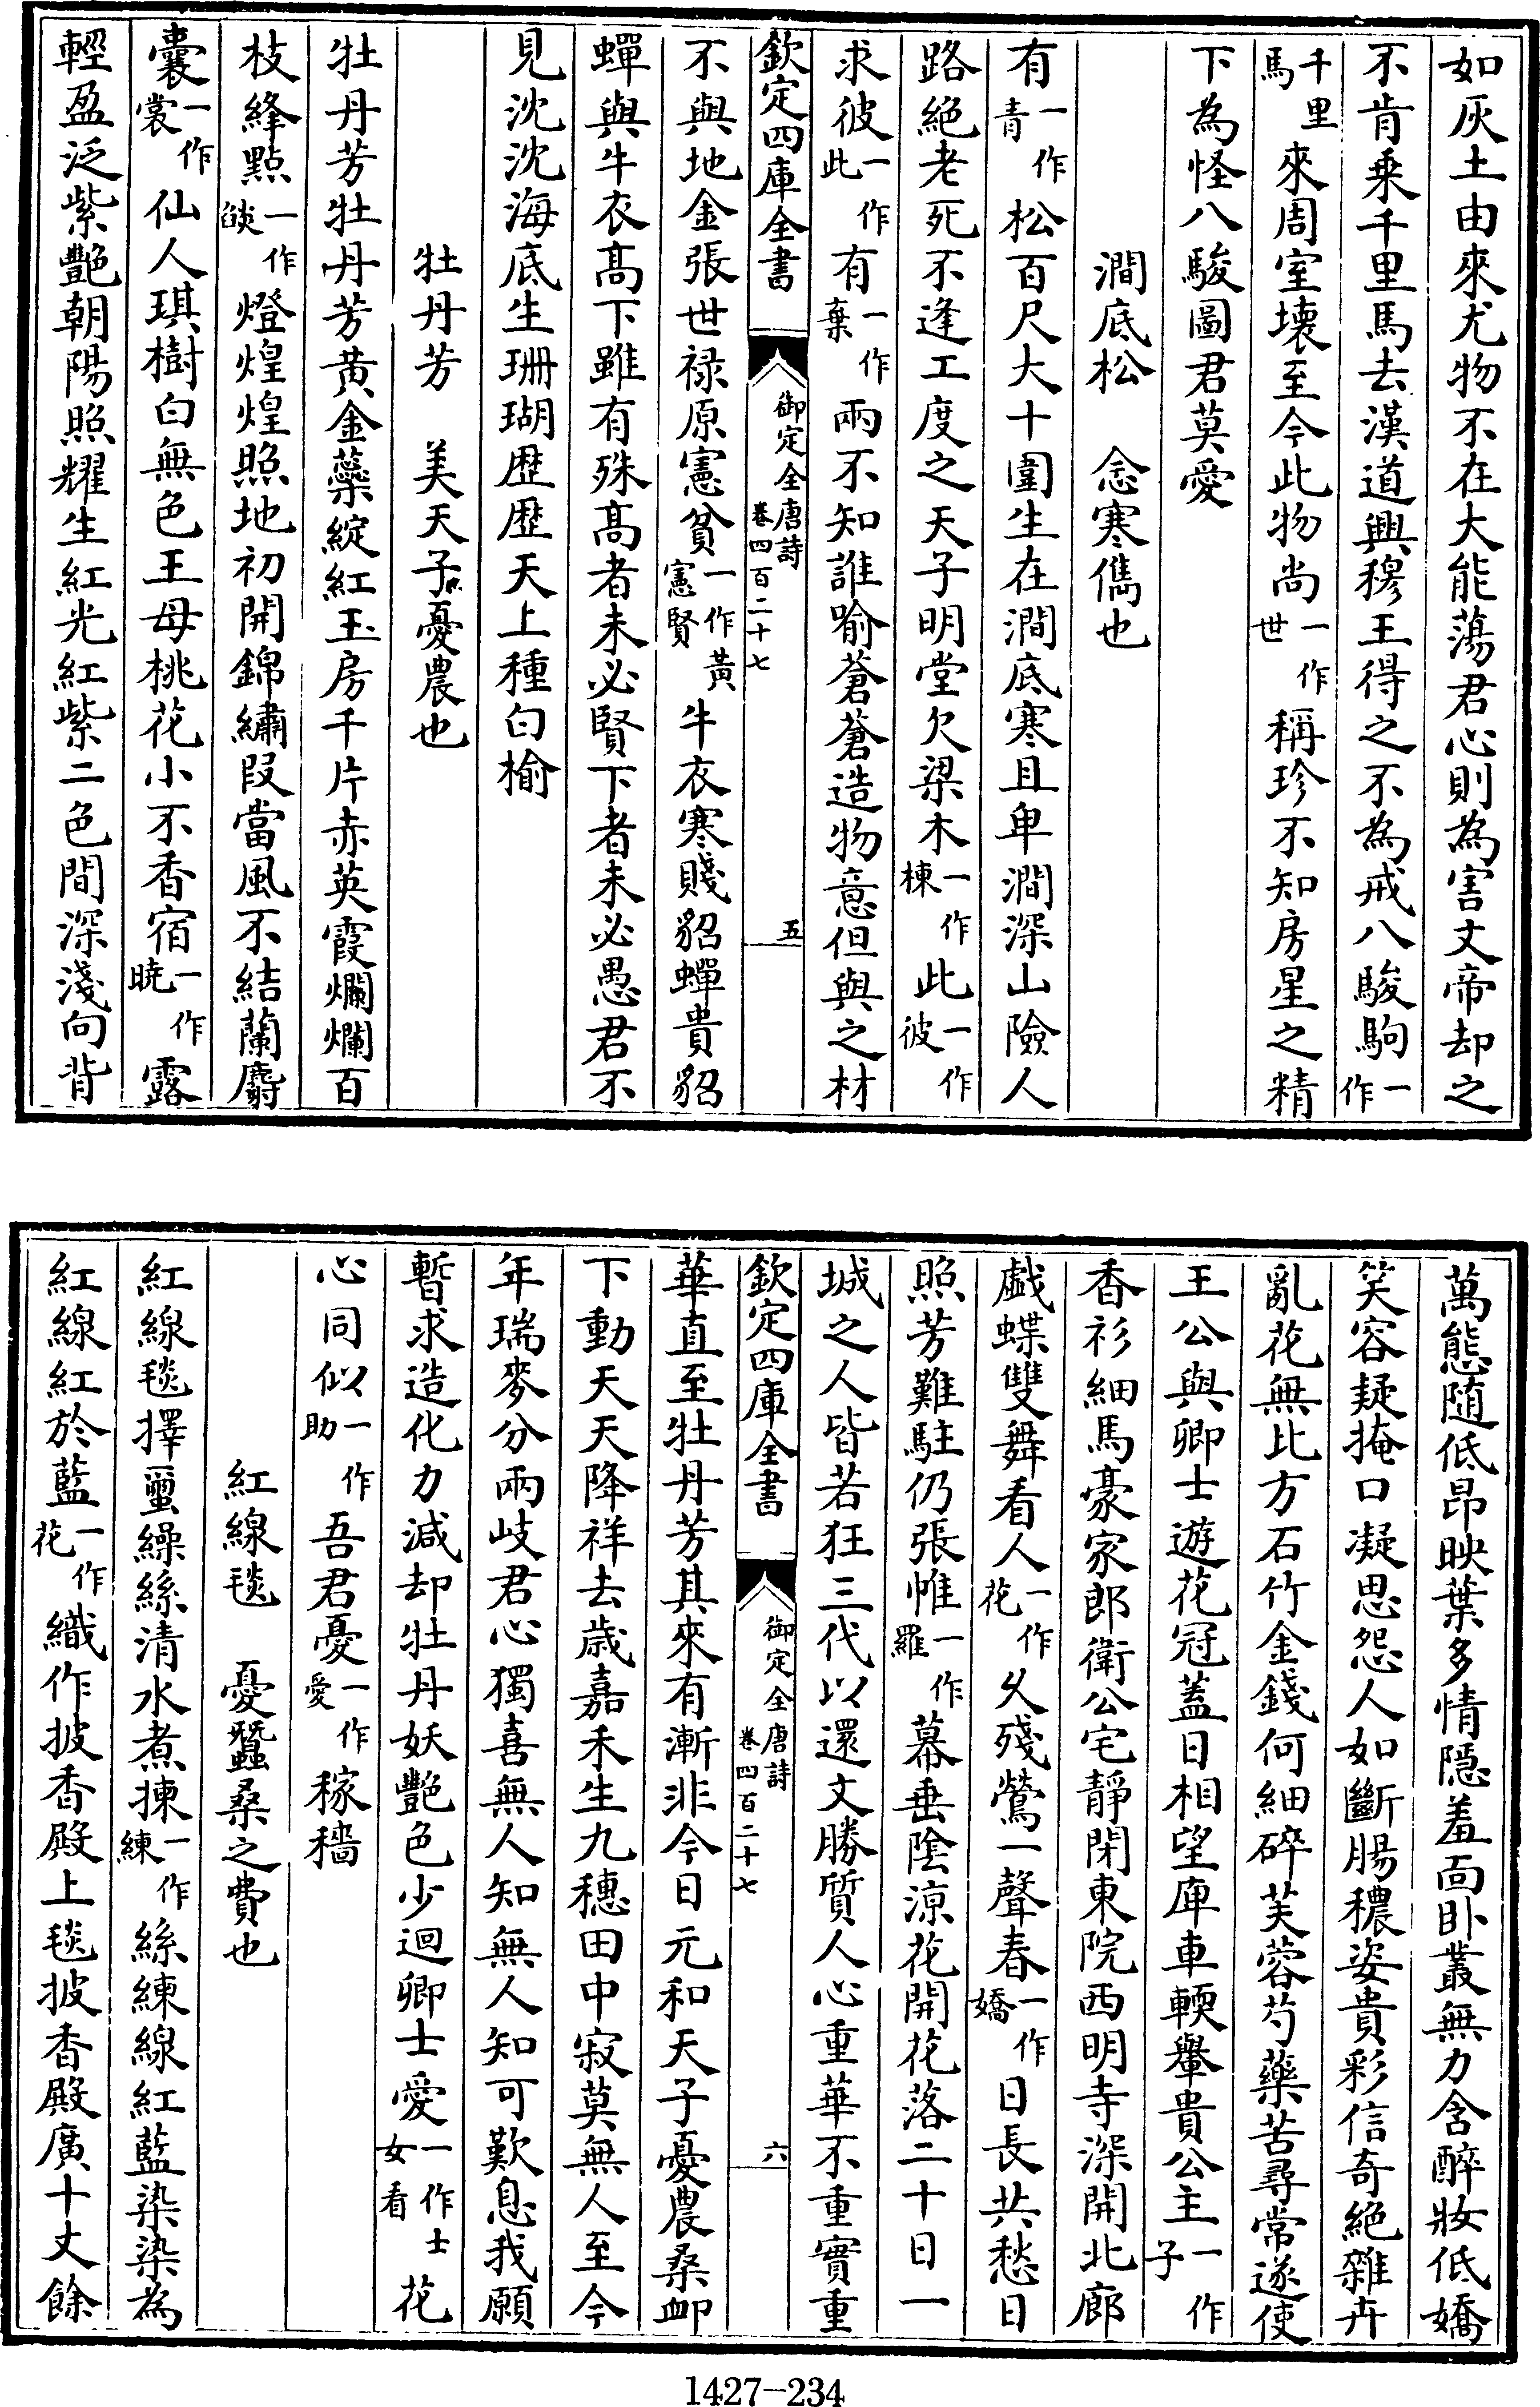 如灰土由來尤物不在大能蕩君心則為害文帝却之
不肯乗千里馬去漢道興穆王得之不為戒八駿駒一作
千里馬來周室壊至今此物尚一作世稱珍不知房星之精
下為怪八駿圖君莫愛
澗底松 念寒儁也
有一作青松百尺大十圍生在澗底寒且卑澗深山險人
路絶老死不逢工度之天子明堂欠梁木一作棟此一作彼
求彼一作此有一作棄兩不知誰喻蒼蒼造物意但與之材
欽定四庫全書 御定全唐詩 卷四百二十七 五
不與地金張世禄原憲貧一作黃憲賢牛衣寒賤貂蟬貴貂
蟬與牛衣髙下雖有殊髙者未必賢下者未必愚君不
見沈沈海底生珊瑚歴歴天上種白榆
牡丹芳 美天子憂農也
牡丹芳牡丹芳黄金蘂綻紅玉房千片赤英霞爛爛百
枝絳點一作燄燈煌煌照地初開錦繡段當風不結蘭麝
囊一作裳仙人琪樹白無色王母桃花小不香宿一作曉露
輕盈泛紫艷朝陽照耀生紅光紅紫二色間深淺向背
萬態隨低昂映葉多情隠羞面卧叢無力含醉妝低嬌
笑容疑掩口凝思怨人如斷腸穠姿貴彩信奇絶雜卉
亂花無比方石竹金錢何細碎芙蓉芍藥苦尋常遂使
王公與卿士遊花冠蓋日相望庳車輭轝貴公主一作子
香衫細馬豪家郎衛公宅靜閉東院西明寺深開北廊
戲蝶雙舞看人一作花乆殘鶯一聲春一作嬌日長共愁日
照芳難駐仍張帷一作羅幕垂陰凉花開花落二十日一
城之人皆若狂三代以還文勝質人心重華不重實重
欽定四庫全書 御定全唐詩 卷四百二十七 六
華直至牡丹芳其來有漸非今日元和天子憂農桑卹
下動天天降祥去歳嘉禾生九穗田中寂莫無人至今
年瑞麥分兩岐君心獨喜無人知無人知可歎息我願
暫求造化力減却牡丹妖艷色少迴卿士愛一作士女看花
心同似一作助吾君憂一作愛稼穡
紅線毯 憂蠶桑之費也
紅線毯擇䘠繰絲清水煮揀一作練絲練線紅藍染染為
紅線紅於藍一作花織作披香殿上毯披香殿廣十丈餘
1427-234